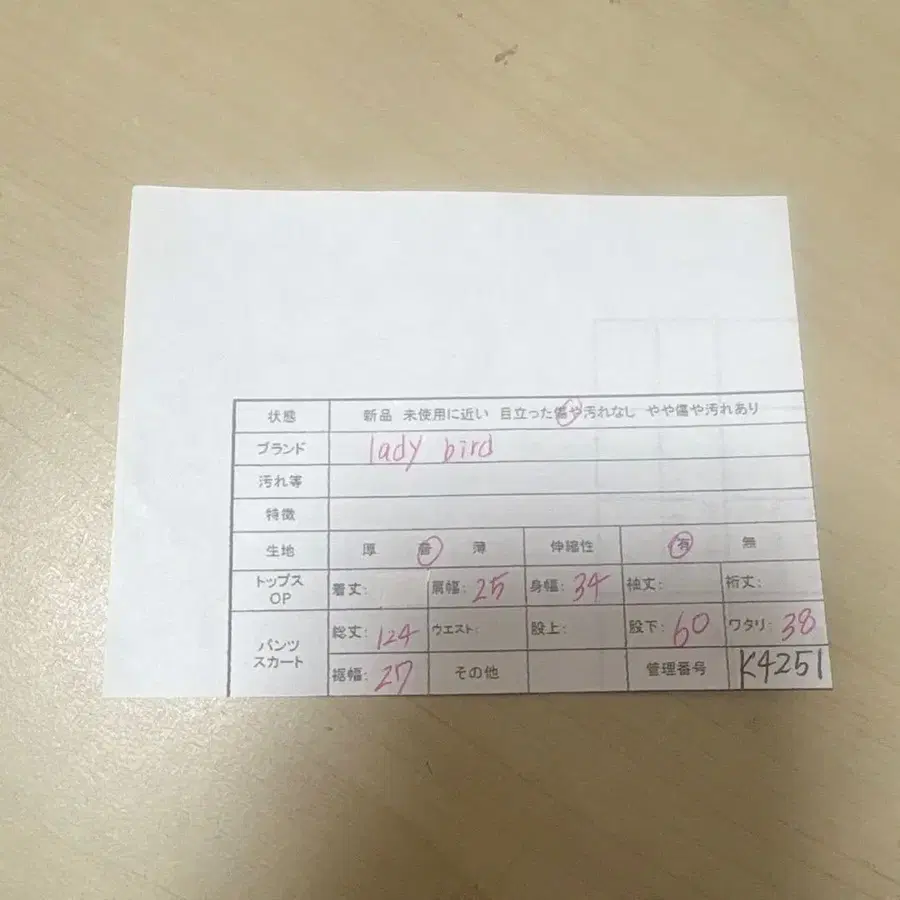 状態 新品 未使用に近い 目立った傷や汚れなし やや傷や汚れあり
ブランド lady bird
汚れ等
特徴
生地 厚 普 薄 伸縮性 有 無
トップス OP 着丈: 肩幅: 25 身幅: 34 袖丈: 裄丈:
パンツ スカート 総丈: 124 ウエスト: 股上: 股下: 60 ワタリ: 38
裾幅: 27 その他 管理番号 K4251